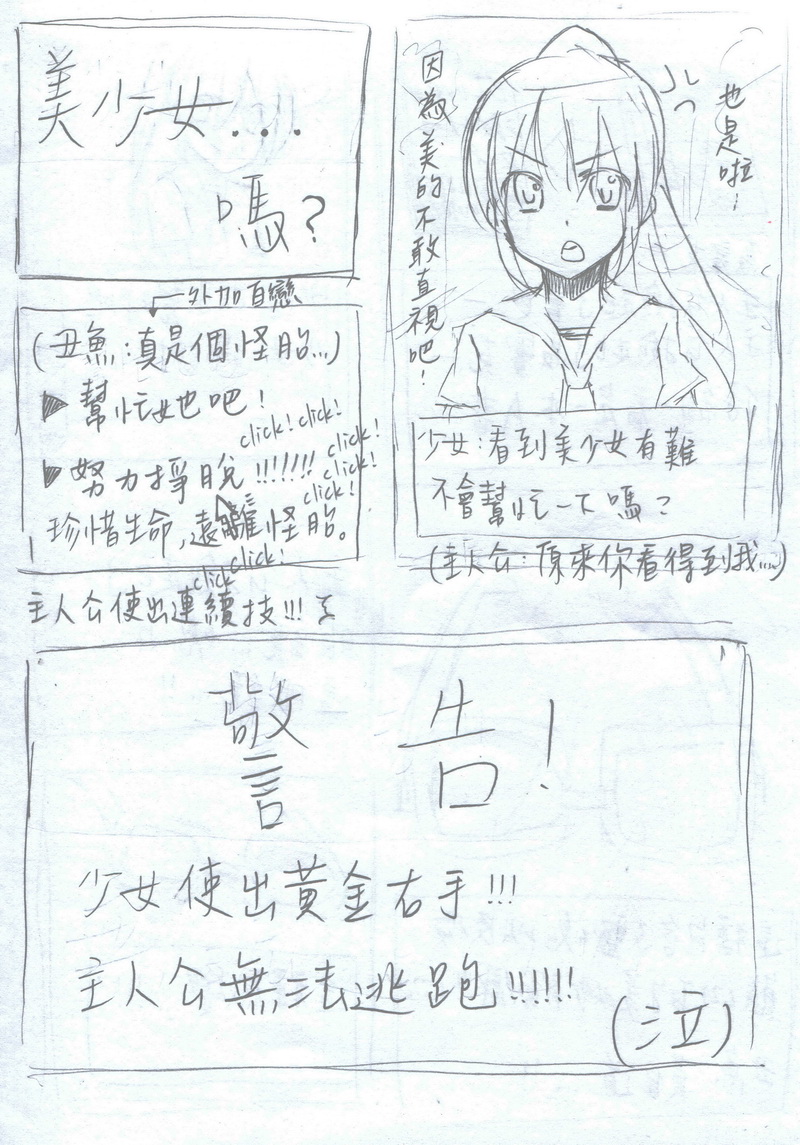 也是啦!
因為美的不敢直視吧!
少女:看到美少女有難
不會幫忙一下嗎?
(主人公:原來你看得到我...)
美少女...
嗎?
外加自戀
(丑魚:真是個怪胎...)
▶幫忙她吧!
▶努力掙脫!!!!!!!
click! click!
click!
click!
click!
珍惜生命,遠離怪胎。
click!
click
主人公使出連續技!!!
警告!
少女使出黃金右手!!!
主人公無法逃跑!!!!!!
(泣)